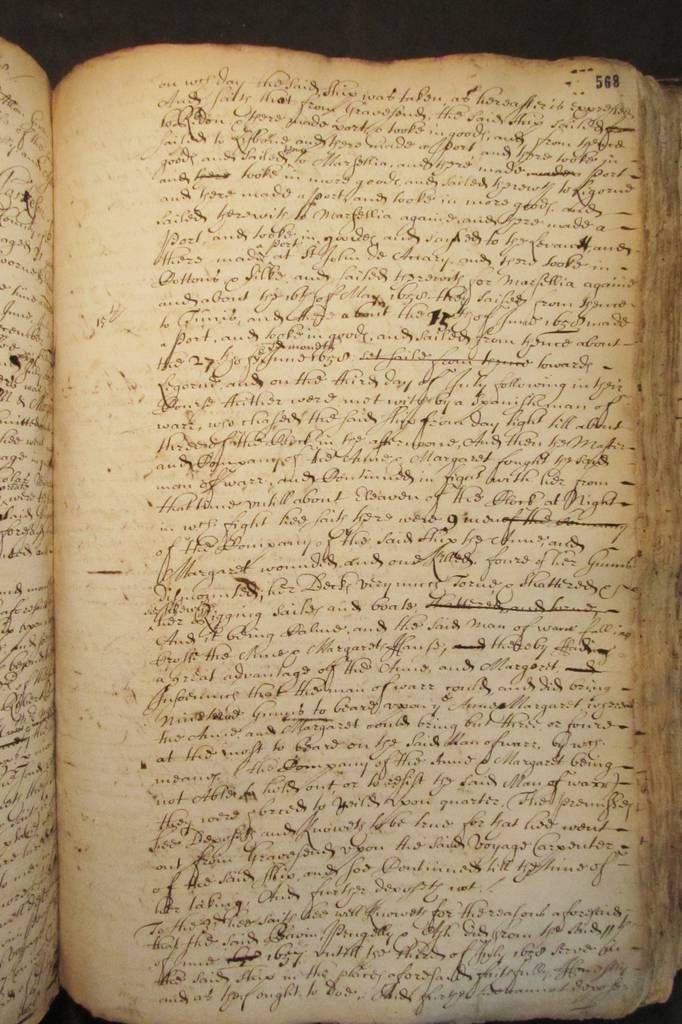 568
on wch day the said ship was taken, as hereafter is expressed
And saith that from Gravesend, the said ship sailed
to there made port & tooke in goods, and from thence
sailed to and there made a Port and there tooke in
goods and sailed to Marsellia, and there made Port
and tooke in more goods, and sailed therewith to Ligorne
and there made a port, and tooke in more goods, and
sailed therewith to Marsellia againe, and there made a
Port, and tooke in goodes, and sayled to the Levant, and
there made a Port at St John de and there tooke in
Cottons & Silke, and sailed therewith for Marsellia againe
and about the 16th of May 1658 they sailed from thence
to Tunis, and there about the 15 th of June 1658 made
15th
a Port, and tooke in goods, and sailed from thence about
the 27th of June 1658 set saile from thence towards
said moneth
Legorne, and on the third day of July following in their
Course thither were met with by a Spanish man of
warr, who chased the said ship from day light till about
three of the Clock in the afternoone, And then the Master
and Company of the Anne & Margaret fought the said
man of warr, and Continued in fight with her from
that time untill about Eleaven of the Clock at Night
in wch fight hee saith there were 9 men of the Company
of the Company of the said ship the Anne, and
Margaret wounded, and one killed, foure of her Gunns
dismounted, her Decks very much Torne & shattered &
her Rigging Sailes and boate, shattered and torne,
And it being Calme, and the said Man of warr falling
the Anne & Margarets and thereby
a great advantage of the Anne, and Margaret and
Insomuch that the man of warr could, and did bring
Gunns to beare upon ye Anne Margaret whereas
the Anne and Margaret could bring but three or foure
at the most to beare on the said Man of warr, by wch
meanes the Company of the Anne & Margaret being
not Able to hold out or to resist the said Man of warr
they were forced to Yeild upon quarter, The premisses
hee Deposeth and knoweth to be true for that hee went
out from Gravesend upon the said Voyage Carpenter
of the said ship, and soe Continued till the time of
her taking, And further deposeth not.
To the 9th hee saith hee well knoweth for the reasons aforesaid
that the said Edwin Pengelly & did from the said 11th
of June 1657 untill the third of July 1658 serve in
the said ship in the places aforesaid faithfully & honestly
and as they ought to doe, And further hee cannot depose